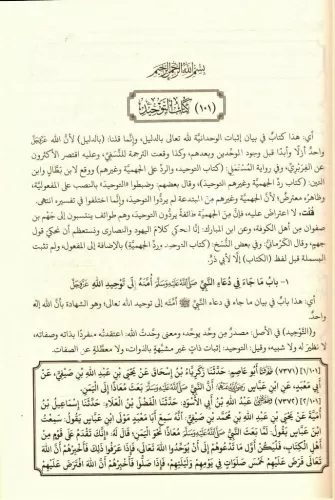 بسم الله الرحمن الرحيم
(١٠١) كتاب التوحيد
أي: هذا كتابٌ في بيان إثبات الوحدانية لله تعالى بالدليل، وإنَّما قلنا: (بالدليل) لأنَّ الله عَزَّوَجَلَّ
واحدٌ أزلًا وأبدًا قبل وجود الموحِّدين وبعدهم، وكذا وقعت الترجمة للنَّسَفِيِّ، وعليه اقتصر الأكثرون
عن الفَرَبْرِيِّ، وفي رواية المُسْتَمْلِي: (كتاب التوحيد، والردّ على الجهمية وغيرهم) ووقع لابن بطَّال وابن
التين: (كتاب ردّ الجهمية وغيرهم التوحيدَ)، وقال بعضهم: وضبطوا (التوحيد) بالنصب على المفعوليَّة،
وظاهره معترضٌ؛ لأنَّ الجهمية وغيرهم من المبتدعة لم يردُّوا التوحيد، وإنَّما اختلفوا في تفسيره، انتهى.
قلت: لا اعتراض عليه، فإنَّ من الجهمية طائفةً يردُّون التوحيد، وهم طوائف ينتسبون إلى جَهْم بن
صفوان من أهل الكوفة، وعن ابن المبارك: إنَّا لنحكي كلام اليهود والنصارى ونستعظم أن نحكي قول
جهمٍ، وقال الكَرْمَانيُّ: وفي بعض النُّسَخ: (كتاب التوحيد، وردِّ الجهميَّةِ) بالإضافة إلى المفعول، ولم تثبت
البسملة قبل لفظ (الكتاب) إلَّا لأبي ذرٍّ.
١- بابُ مَا جَاءَ فِي دُعَاءِ النَّبِيِّ صَلَّى اللهُ عَلَيْهِ وَسَلَّمَ أُمَّتَهُ إِلَى تَوْحِيدِ اللهِ عَزَّوَجَلَّ
أي: هذا بابٌ في بيان ما جاء في دعاء النَّبيِّ ﷺ أمَّته إلى توحيد الله تعالى، وهو الشهادة بأنَّ الله إلهٌ
واحدٌ.
و(التَّوْحِيد) في الأصل: مصدرٌ من وحَّد يوحِّد، ومعنى وحَّدتُ الله: اعتقدتُه منفردًا بذاته وصفاته،
لا نظيرَ له ولا شبيه، وقيل: التوحيد: إثبات ذاتٍ غير مشبَّهةٍ بالذوات، ولا معطَّلةٍ عن الصفات.
(٧٣٧١) حَدَّثَنَا أَبُو عَاصِمٍ: حَدَّثَنَا زَكَرِيَّاءُ بْنُ إِسْحَاقَ عَنْ يَحْيَى بْنِ عَبْدِ اللهِ بْنِ صَيْفِيٍّ، عَنْ
أَبِي مَعْبَدٍ، عَنِ ابْنِ عَبَّاسٍ: أَنَّ النَّبِيَّ صَلَّى اللهُ عَلَيْهِ وَسَلَّمَ بَعَثَ مُعَاذًا إِلَى اليَمَنِ.
(٧٣٧٢) وحَدَّثَنِي عَبْدُ اللهِ بْنُ أَبِي الأَسْوَدِ: حَدَّثَنَا الفَضْلُ بْنُ العَلَاءِ: حَدَّثَنَا إِسْمَاعِيلُ بْنُ
أُمَيَّةَ عَنْ يَحْيَى بْنِ عَبْدِ اللهِ بْنِ مُحَمَّدِ بْنِ صَيْفِيٍّ: أَنَّهُ سَمِعَ أَبَا مَعْبَدٍ مَوْلَى ابْنِ عَبَّاسٍ يَقُولُ: سَمِعْتُ
ابْنَ عَبَّاسٍ يَقُولُ: لَمَّا بَعَثَ النَّبِيُّ صَلَّى اللهُ عَلَيْهِ وَسَلَّمَ مُعَاذًا نَحْوَ اليَمَنِ، قَالَ لَهُ: «إِنَّكَ تَقْدَمُ عَلَى قَوْمٍ مِنْ
أَهْلِ الكِتَابِ، فَلْيَكُنْ أَوَّلَ مَا تَدْعُوهُمْ إِلَى أَنْ يُوَحِّدُوا اللهَ تَعَالَى، فَإِذَا عَرَفُوا ذَلِكَ فَأَخْبِرْهُمْ أَنَّ اللهَ
تَعَالَى فَرَضَ عَلَيْهِمْ خَمْسَ صَلَوَاتٍ فِي يَوْمِهِمْ وَلَيْلَتِهِمْ، فَإِذَا صَلَّوْا فَأَخْبِرْهُمْ أَنَّ اللهَ افْتَرَضَ عَلَيْهِمْ